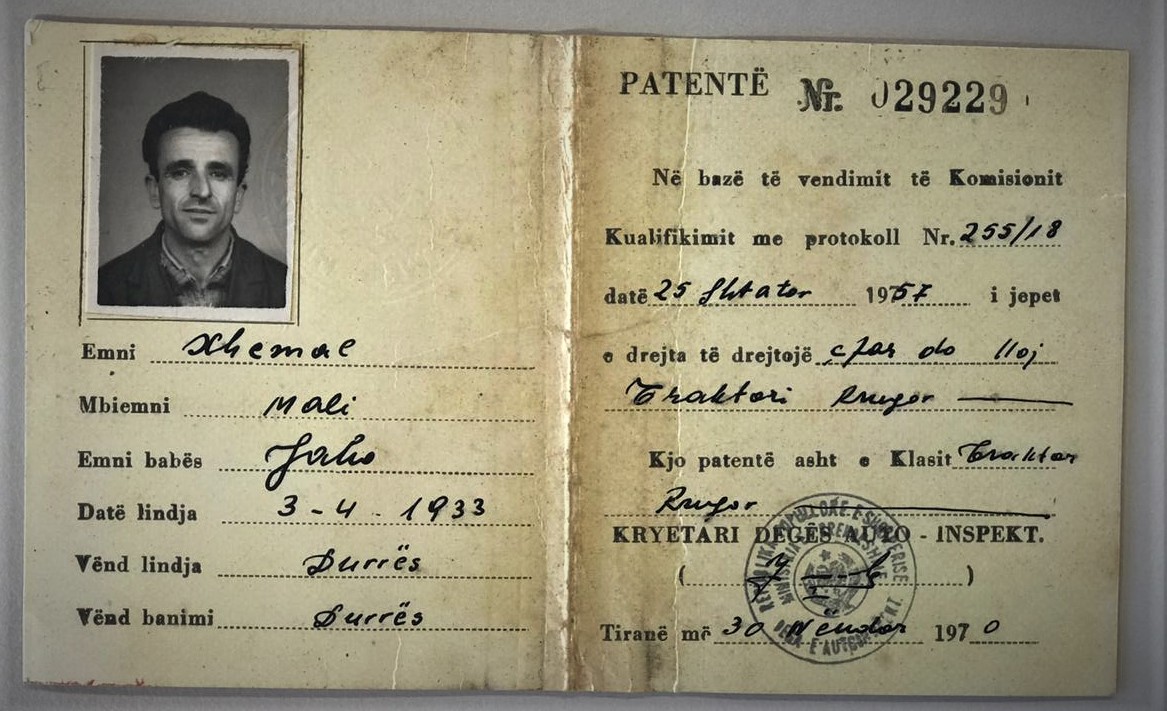 Emni Xhemal
Mbiemni Mali
Emni babës Jaho
Datë lindja 3-4-1933
Vënd lindja Durrës
Vënd banimi Durrës
PATENTË Nr. 029229
Në bazë të vendimit të Komisionit
Kualifikimit me protokoll Nr. 255/18
datë 25 Shtator 1957 i jepet
e drejta të drejtojë çfar do lloj
Traktori Rrugor
Kjo patentë asht e Klasit Traktor
Rrugor
KRYETARI DEGËS AUTO - INSPEKT.
( )
Tiranë më 30 Nëndor 1970
REPUBLIKA POPULLORE E SHQIPERISE